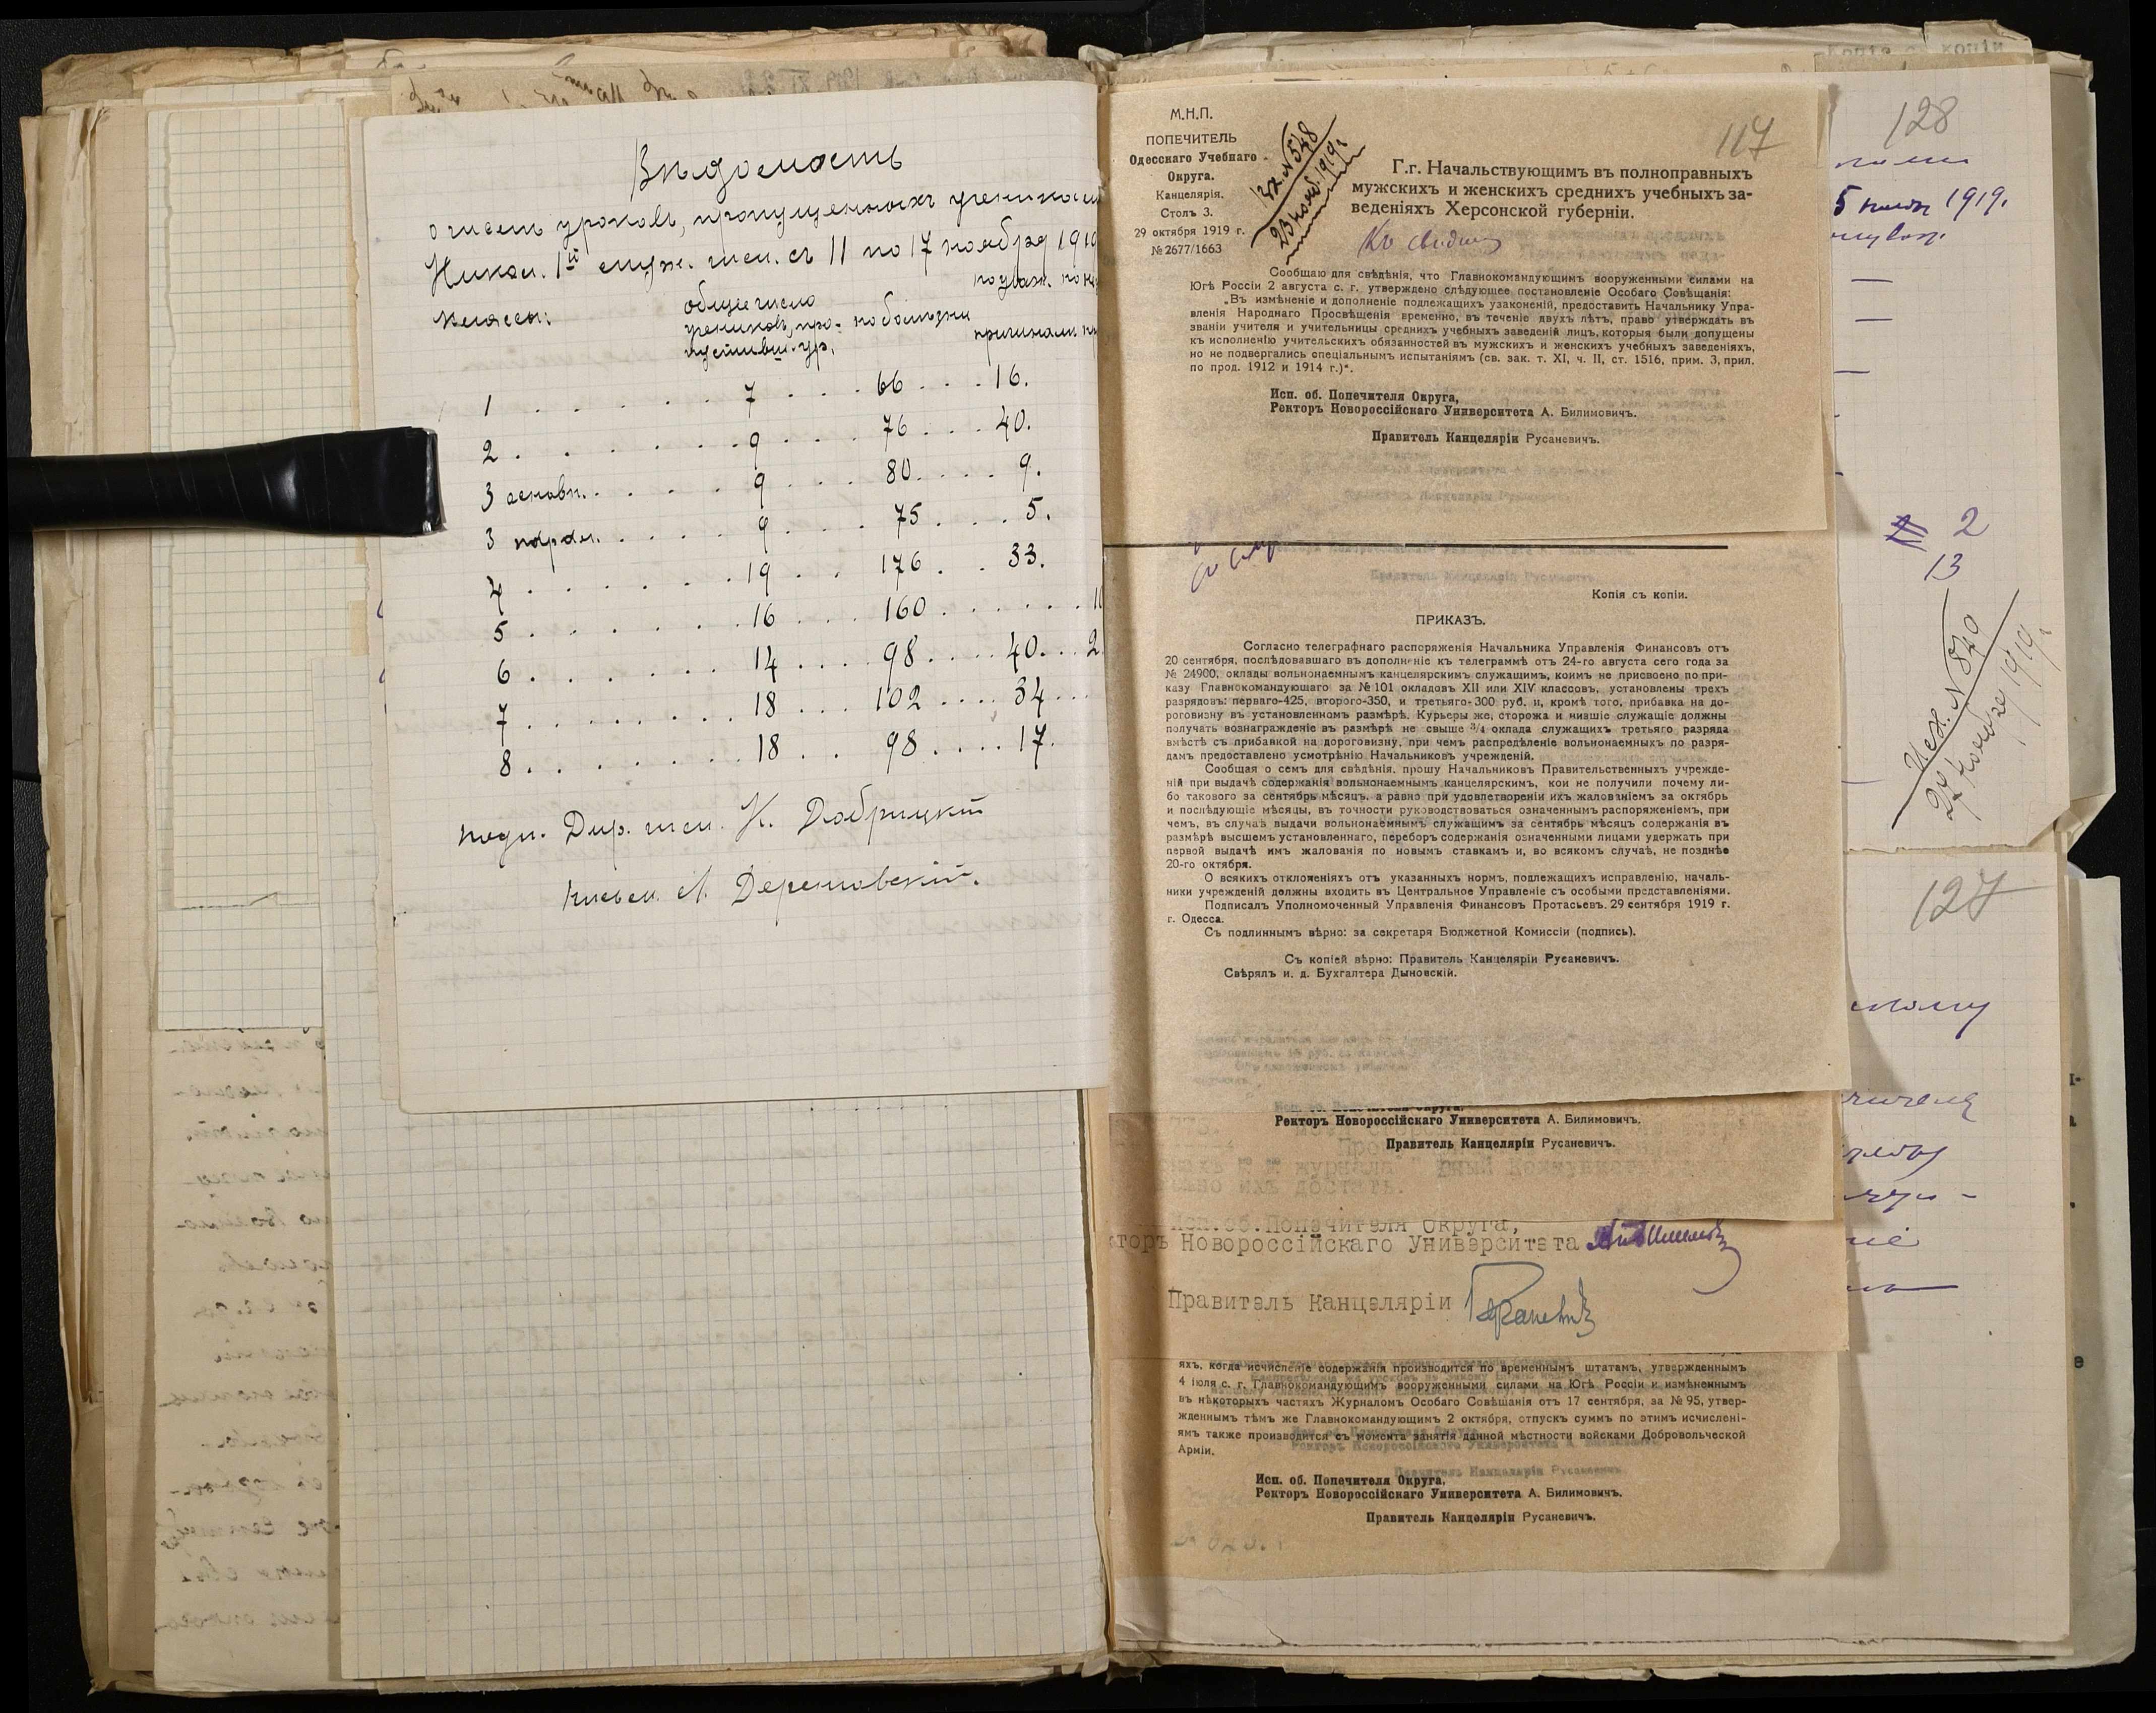 Вѣдомость
о числѣ уроковъ, пропущенныхъ ученикам
Никол. 1ой муж. гимн. съ 11 по 17 ноября 1919
Классы:
общее число
учениковъ, про-
пустивш. ур.
по болѣзни
по уваж.
причинамъ
1 . . . . . . . 7 . . . 66 . . . 16.
2 . . . . . . . 9 . . . 76 . . . 40.
3 основн. . . . . . 9 . . . 80 . . . . 9.
3 парал. . . . . . 9 . . . 75 . . . . 5.
4 . . . . . . . 19 . . 176 . . 33.
5 . . . . . . . 16 . . . 160 . . . . . .
6 . . . . . . . 14 . . . . 98 . . . . 40 . . . 2
7 . . . . . . . . 18 . . . 102 . . . . 34 . . .
8 . . . . . . . . 18 . . . 98 . . . . 17.
подп. Дир. гимн. К. Добрицкій
М.Н.П.
ПОПЕЧИТЕЛЬ
Одесскаго Учебнаго
Округа.
Канцелярія.
Столъ 3.
29 октября 1919 г.
№ 2677/1663
Вх. № 548
23 нояб. 1919 г.
117
Г.г. Начальствующимъ въ полноправныхъ
мужскихъ и женскихъ средних учебныхъ за-
веденіяхъ Херсонской губерніи.
Сообщаю для свѣдѣнія, что Главнокомандующимъ вооруженными силами на
Югѣ Россіи 2 августа с. г. утверждено слѣдующее постановленіе Особаго Совѣщанія:
„Въ измѣненіе и дополненіе подлежащихъ узаконеній, предоставить Начальнику Упра-
вленія Народнаго Просвѣщенія временно, въ теченіе двухъ лѣтъ, право утверждать въ
званіи учителя и учительницы среднихъ учебныхъ заведеній лицъ, которыя были допущены
къ исполненію учительскихъ обязанностей въ мужскихъ и женскихъ учебныхъ заведеніяхъ,
но не подвергались спеціальнымъ испытаніямъ (св. зак. т. XI, ч. II, ст. 1516, прим. 3, прил.
по прод. 1912 и 1914 г.)".
Исп. об. Попечителя Округа,
Ректоръ Новороссійскаго Университета А. Билимовичъ.
Правитель Канцеляріи Русаневичъ.
Копія съ копіи.
ПРИКАЗЪ.
Согласно телеграфнаго распоряженія Начальника Управленія Финансовъ отъ
20 сентября, послѣдовавшаго въ дополненіе къ телеграммѣ отъ 24-го августа сего года за
№ 24900, оклады вольнонаемнымъ канцелярскимъ служащимъ, коимъ не присвоено по при-
казу Главнокомандующаго за № 101 окладовъ XII или XIV классовъ, установлены трехъ
разрядовъ: перваго-425, второго-350, и третьяго-300 руб. и, кромѣ того, прибавка на до-
роговизну въ установленномъ размѣрѣ. Курьеры же, сторожа и низшіе служащіе должны
получать вознагражденіе въ размѣрѣ не свыше ¾ оклада служащихъ третьяго разряда
вмѣстѣ съ прибавкой на дороговизну, при чемъ распредѣленіе вольнонаемныхъ по разря-
дамъ предоставлено усмотрѣнію Начальниковъ учрежденій.
Сообщая о семъ для свѣдѣнія, прошу Начальниковъ Правительственныхъ учрежде-
ній при выдачѣ содержанія вольнонаемнымъ канцелярскимъ, кои не получили почему ли-
бо такового за сентябрь мѣсяцъ, а равно при удовлетвореніи ихъ жалованіемъ за октябрь
и послѣдующіе мѣсяцы, въ точности руководствоваться означеннымъ распоряженіемъ, при
чемъ, въ случаѣ выдачи вольнонаемнымъ служащимъ за сентябрь мѣсяцъ содержанія въ
размѣрѣ высшемъ установленнаго, переборъ содержанія означенными лицами удержать при
первой выдачѣ имъ жалованія по новымъ ставкамъ и, во всякомъ случаѣ, не позднѣе
20-го октября.
О всякихъ отклоненіяхъ отъ указанныхъ нормъ, подлежащихъ исправленію, началь-
ники учрежденій должны входить въ Центральное Управленіе съ особыми представленіями.
Подписалъ Уполномоченный Управленія Финансовъ Протасьевъ. 29 сентября 1919 г.
г. Одесса.
Съ подлиннымъ вѣрно: за секретаря Бюджетной Комиссіи (подпись).
Съ копіей вѣрно: Правитель Канцеляріи Русаневичъ.
Свѣрялъ и. д. Бухгалтера Дыновскій.
Ректоръ Новороссійскаго Университета А. Билимовичъ.
Правитель Канцеляріи Русаневичъ.
Исп.об.Попечителя Округа,
кторъ Новороссійскаго Университета
Правитель Канцеляріи
яхъ, когда исчисленіе содержанія производится по временнымъ штатамъ, утвержденнымъ
4 іюля с. г. Главнокомандующимъ вооруженными силами на Югѣ Россіи и измѣненнымъ
въ нѣкоторыхъ частяхъ Журналомъ Особаго Совѣщанія отъ 17 сентября, за № 95, утвер-
жденнымъ тѣмъ же Главнокомандующимъ 2 октября, отпускъ суммъ по этимъ исчислені-
ямъ также производится съ момента занятія данной мѣстности войсками Добровольческой
Арміи.
Исп. об. Попечителя Округа,
Ректоръ Новороссійскаго Университета А. Билимовичъ.
Правитель Канцеляріи Русаневичъ.
128
1919.
2
13
Исх. № 840
27 ноября 1919 г.
127